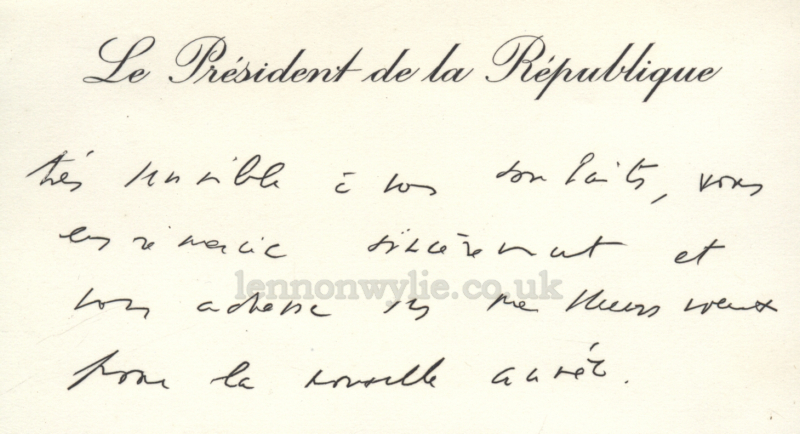 Le Président de la République
très sensible à vos souhaits, vous
en remercie sincèrement et
lennonwylie.co.uk
vous adresse ses meilleurs voeux
pour la nouvelle année.